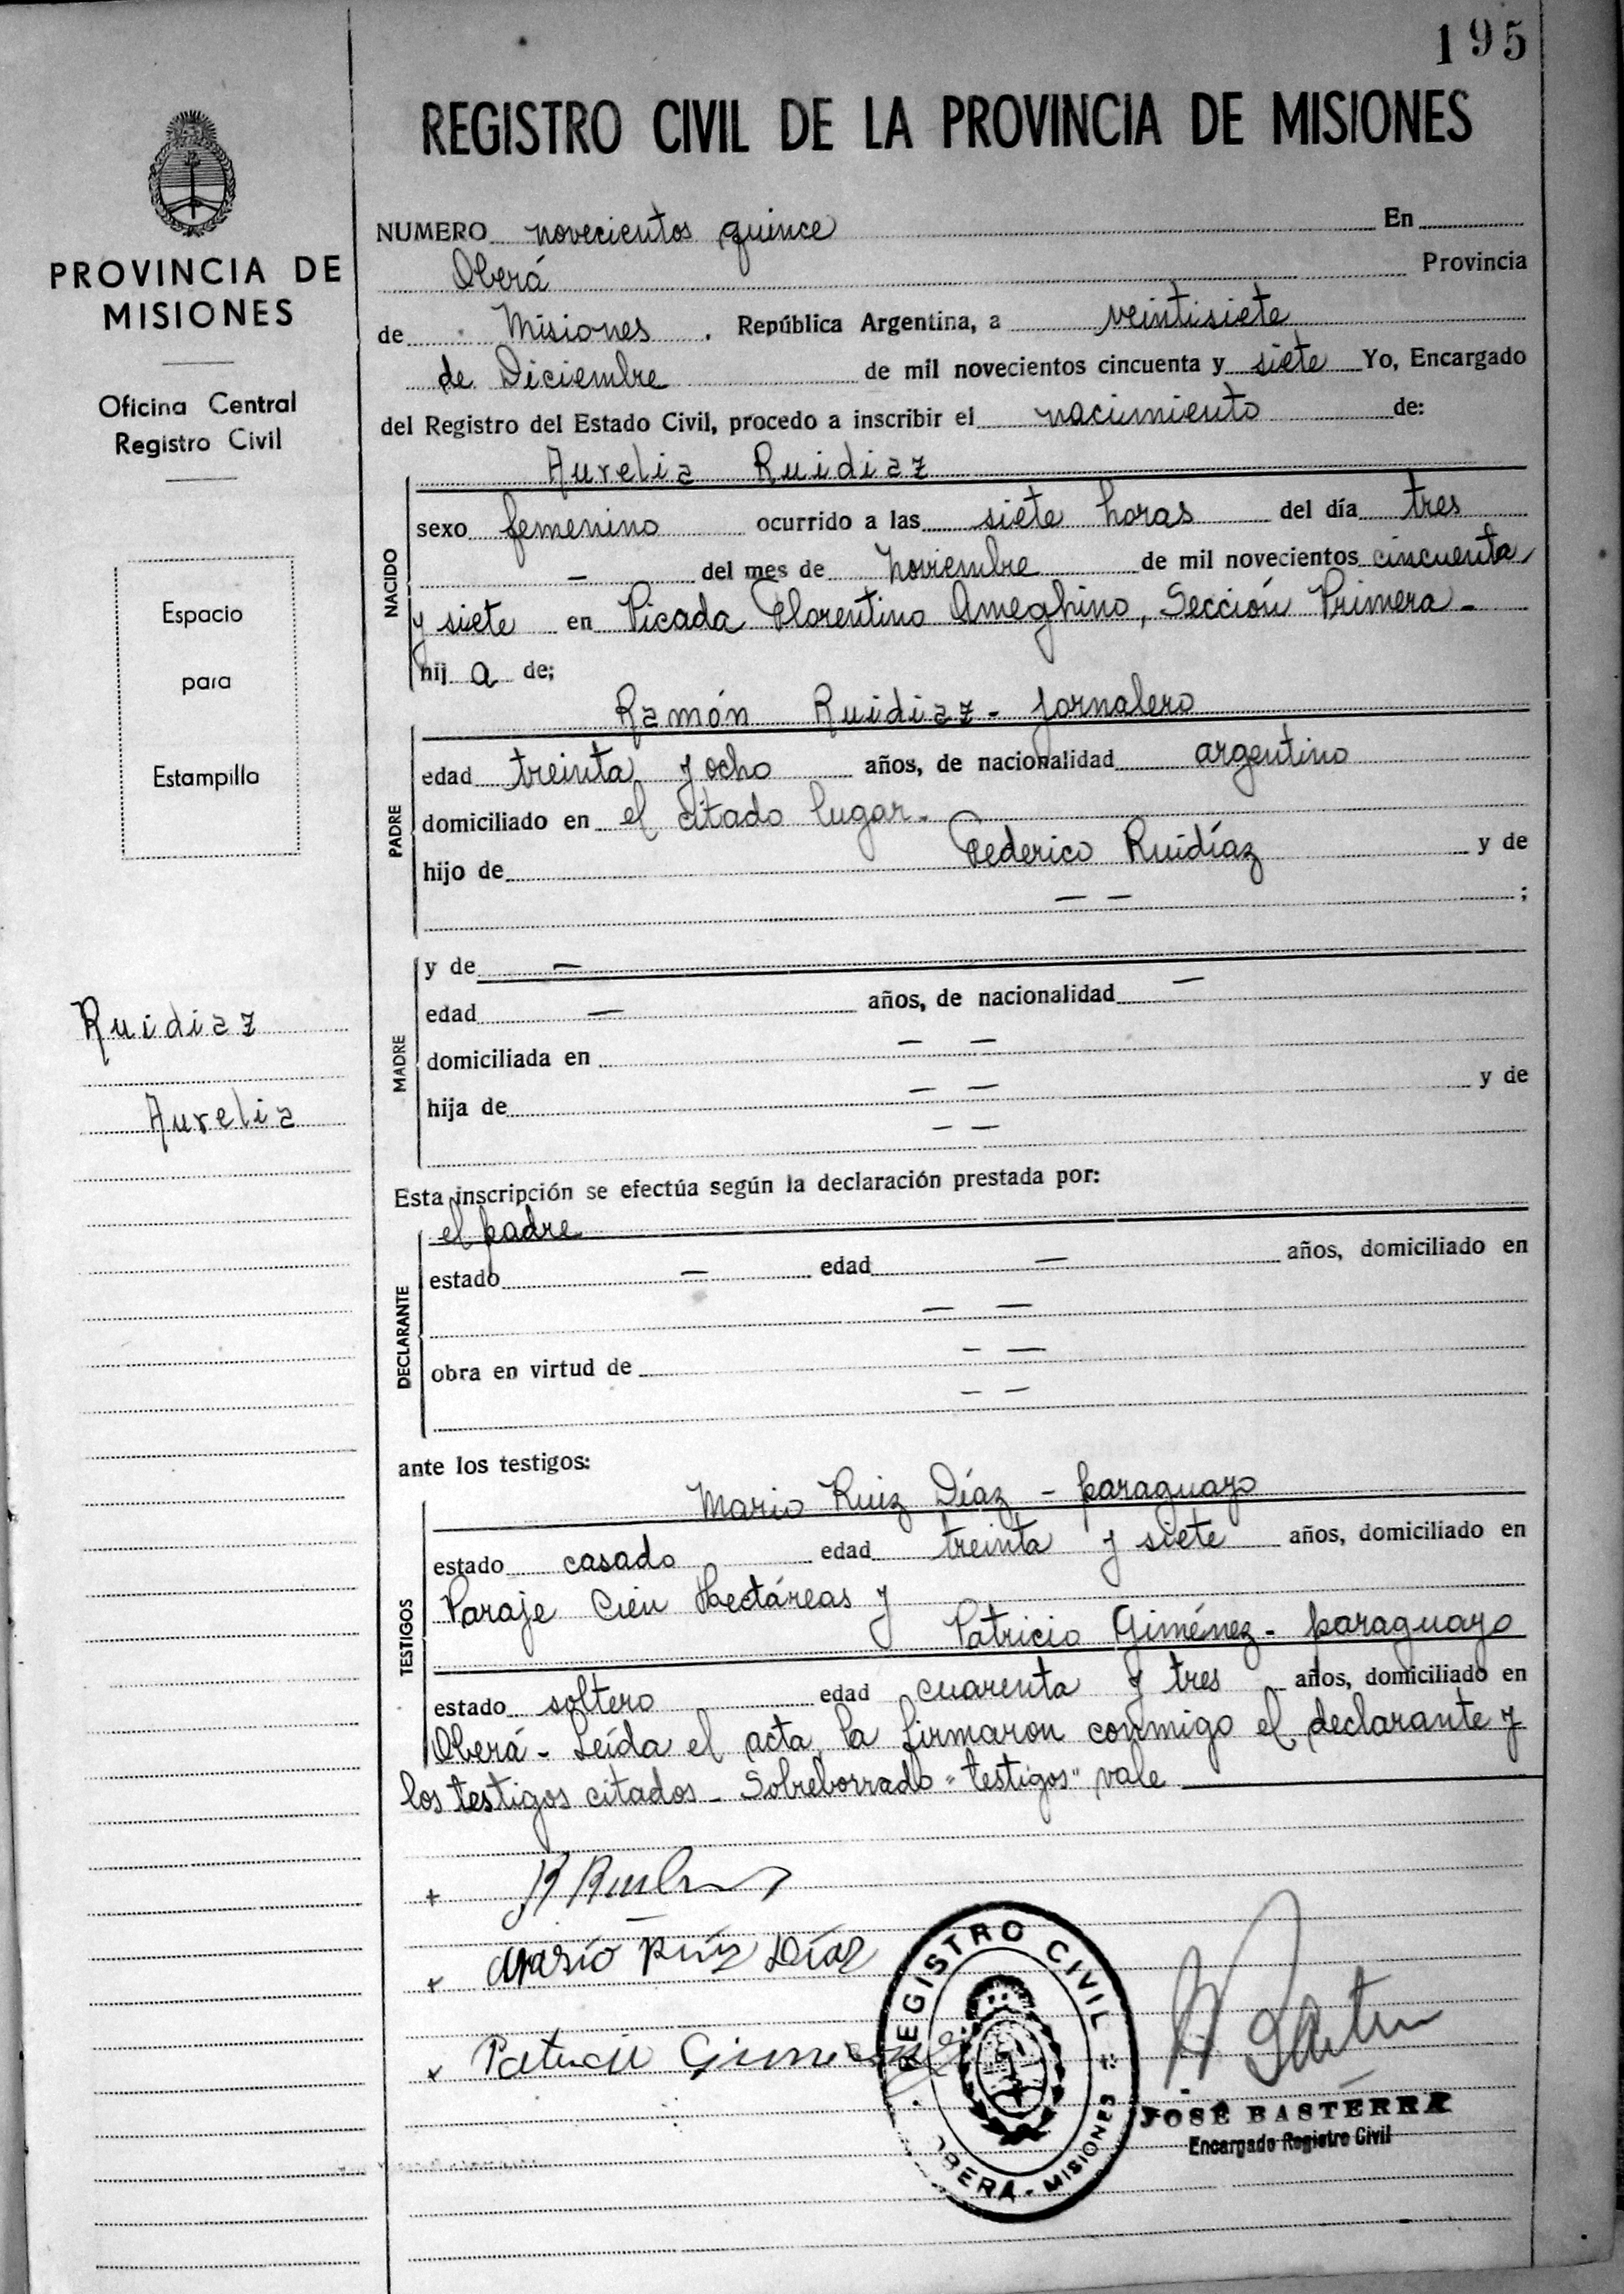 195
REGISTRO CIVIL DE LA PROVINCIA DE MISIONES
PROVINCIA DE
MISIONES
Oficina Central
Registro Civil
Espacio
para
Estampilla
Ruidiaz
Aurelia
NUMERO novecientos quince En
Oberá Provincia
de Misiones. República Argentina, a veintisiete
de Diciembre de mil novecientos cincuenta y siete Yo, Encargado
del Registro del Estado Civil, procedo a inscribir el nacimiento de:
Aurelia Ruidiaz
NACIDO
sexo femenino ocurrido a las siete horas del día tres
— del mes de noviembre de mil novecientos cincuenta
y siete en Picada Florentino Ameghino, Sección Primera -
hij a de;
Ramón Ruidiaz - jornalero
PADRE
edad treinta y ocho años, de nacionalidad argentino
domiciliado en el citado lugar.
hijo de Federico Ruidíaz y de
— — ;
MADRE
y de —
edad — años, de nacionalidad —
domiciliada en — —
hija de — — y de
— —
Esta inscripción se efectúa según la declaración prestada por:
el padre
DECLARANTE
estado — edad — años, domiciliado en
— —
obra en virtud de — —
— —
ante los testigos:
Mario Ruiz Díaz - paraguayo
TESTIGOS
estado casado edad treinta y siete años, domiciliado en
Paraje Cien Hectáreas y
Patricio Giménez - paraguayo
estado soltero edad cuarenta y tres años, domiciliado en
Oberá - Leída el acta, la firmaron conmigo el declarante y
los testigos citados - Sobreborrado "testigos" vale
+
+ Mario Ruiz Díaz
+
REGISTRO CIVIL
OBERÁ - MISIONES
JOSÉ BASTERRA
Encargado Registro Civil